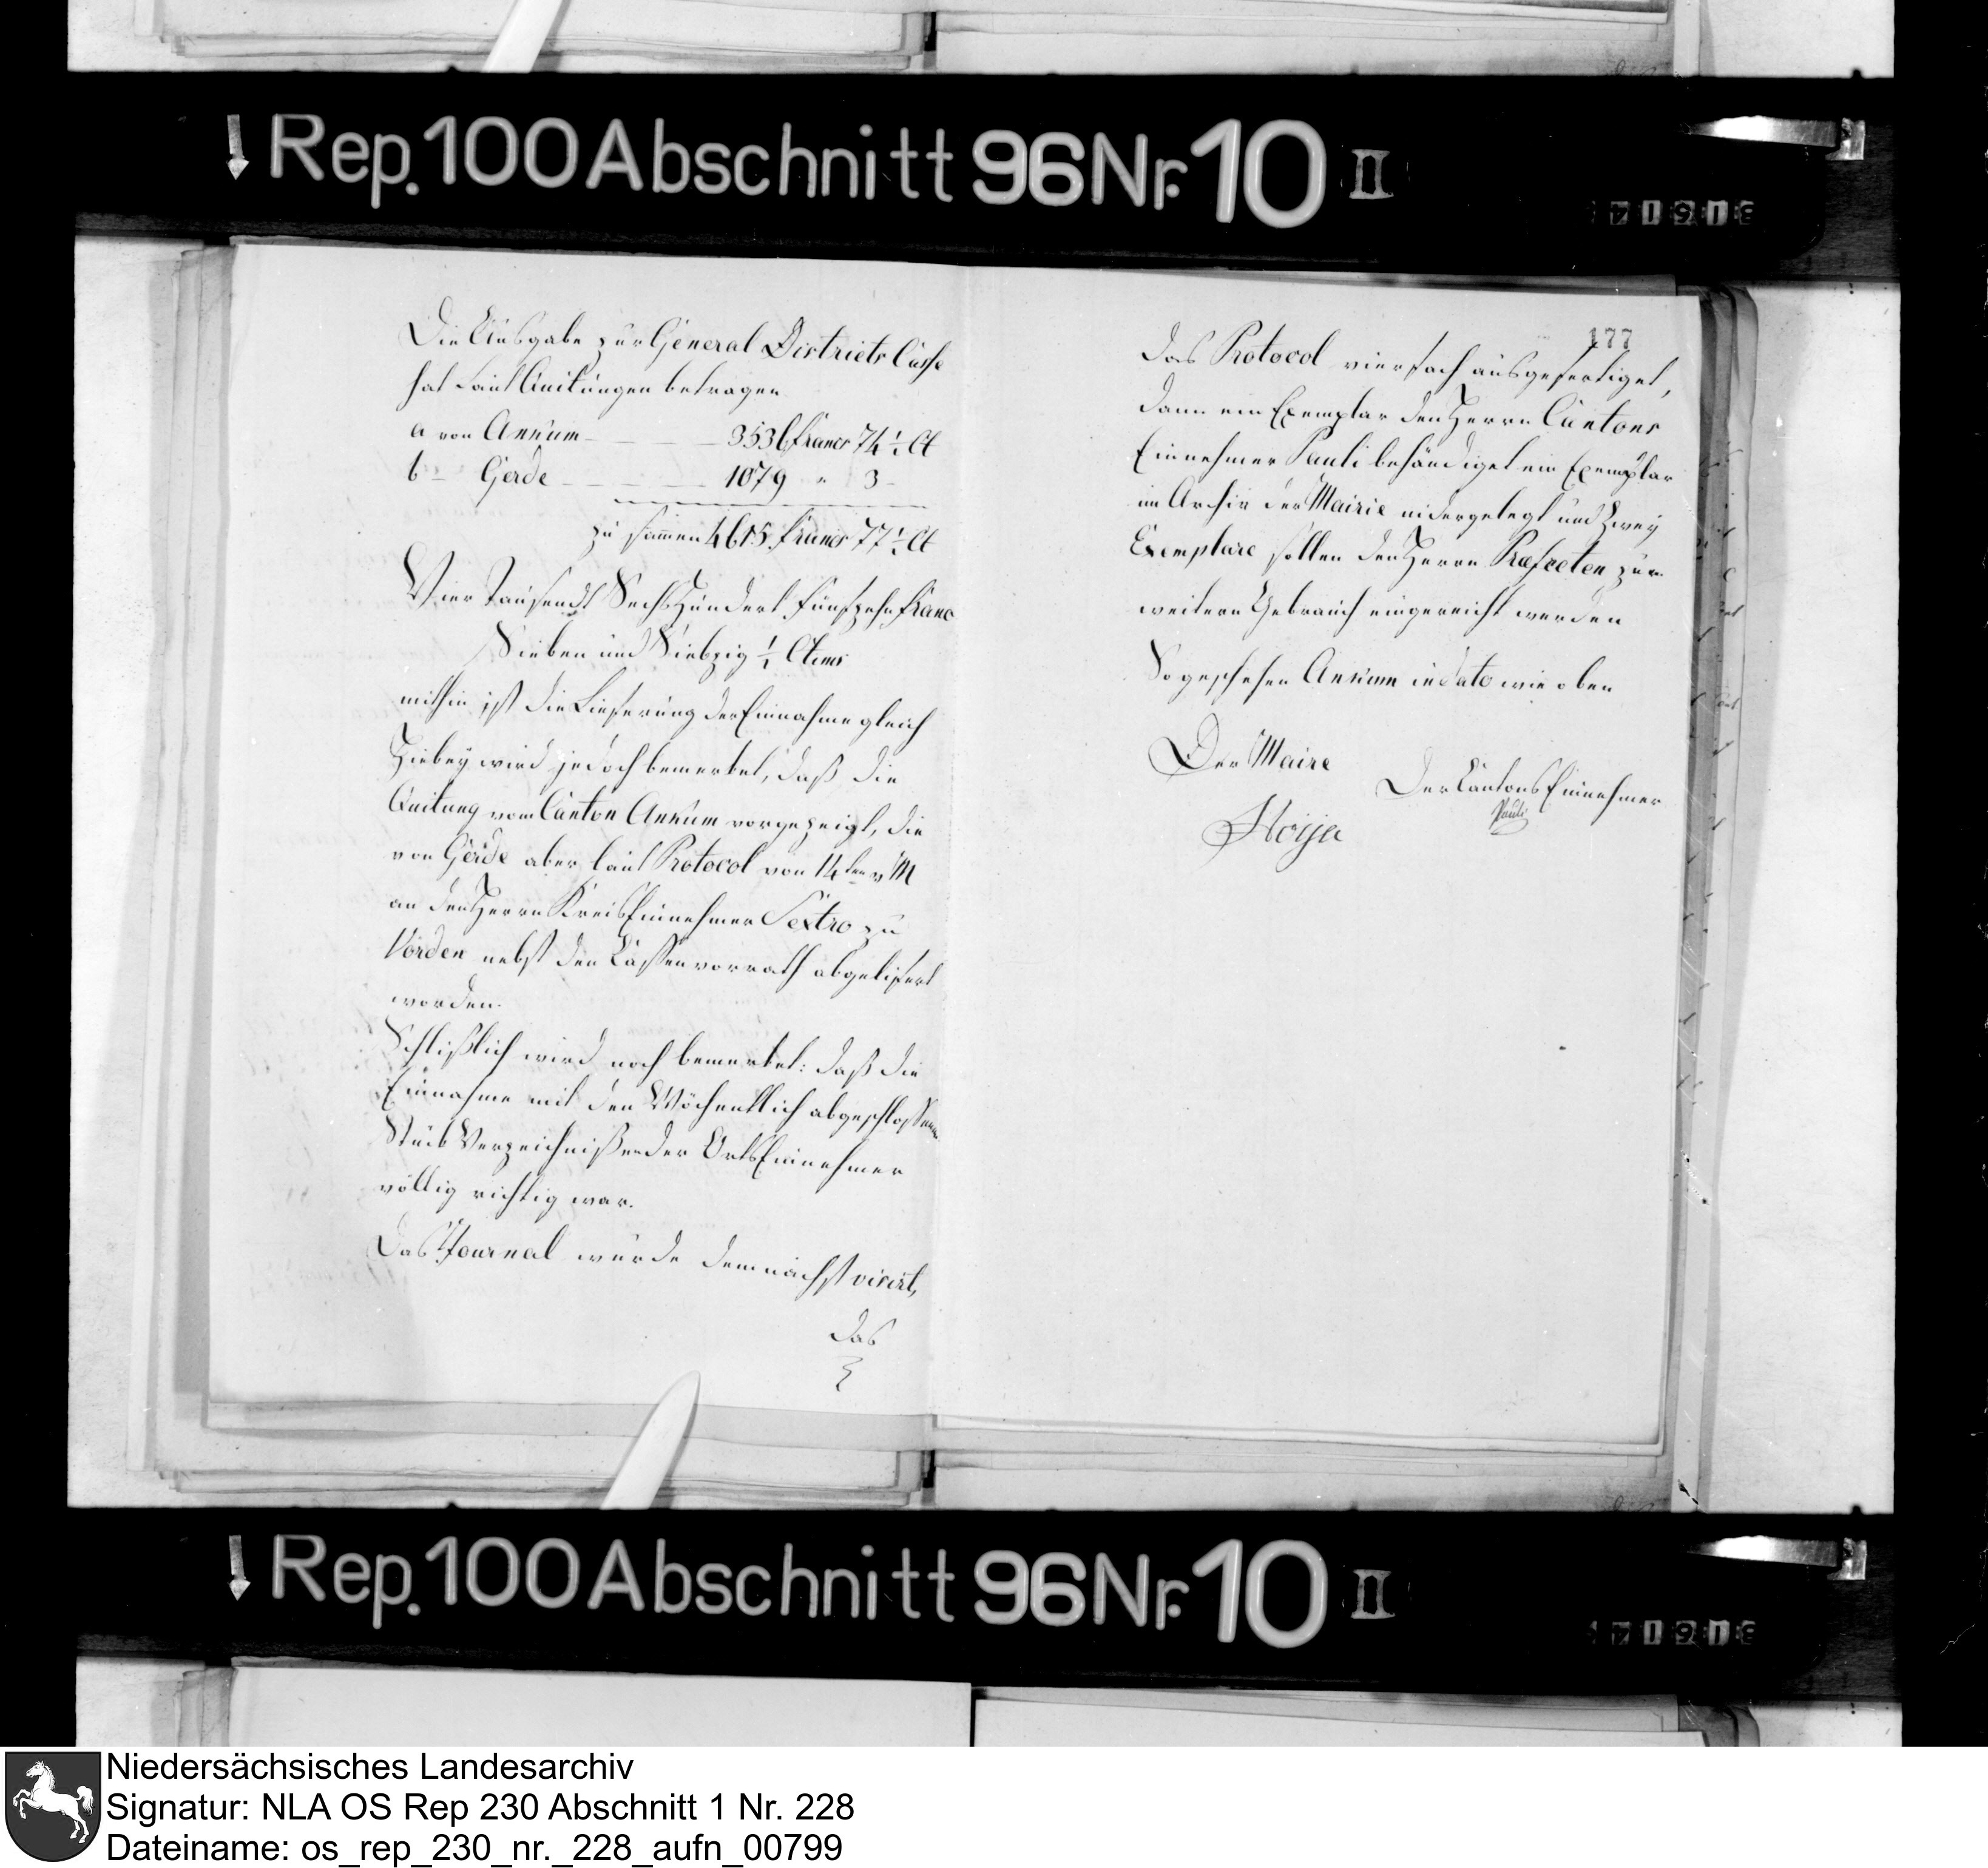 Rep. 100 Abschnitt 96 Nr. 10 II
Die Ausgabe zur General Districts Casse
hat laut Quitungen betragen
a von Ankum 3536 francs 74 1/2 Ct
b – Gerde 1079 " 3 –
zu sammen 4615 francs 77 1/2 Ct
Vier Tausendt Sechs Hundert fünfzehn franc
Sieben und Siebzig 1/2 Ctems
mithin ist die Lieferung der Einnahme gleich
Hiebey wird jedoch bemerket, daß die
Quitung vom Canton Ankum vorgezeigt, die
von Gerde aber laut Protocol von 14ten v M
an den Herrn Kreis Einnehmer Sextro zu
Vörden nebst den Cassenvorrath abgelifert
worden.
Schlißlich wird noch bemerket: daß die
Einnahme mit den Wöchentlich abgeschlossenen
Verzeichnißen der Orts Einnehmer
völlig richtig war.
Das Journal wurde demnächst visirt,
das
177
das Protocol vierfach ausgefertiget,
dann ein Exemplar den Herrn Cantons
Einnehmer Pauli behändiget ein Exemplar
im Archiv der Mairie nidergelegt und Zwey
Exemplare sollen den Herrn Præfecten zum
weitern Gebrauch eingereicht werden
So geschehen Ankum in dato wie oben
Der Maire
Der Cantons Einnehmer
Pauli
Rep. 100 Abschnitt 96 Nr. 10 II
Niedersächsisches Landesarchiv
Signatur: NLA OS Rep 230 Abschnitt 1 Nr. 228
Dateiname: os_rep_230_nr._228_aufn_00799